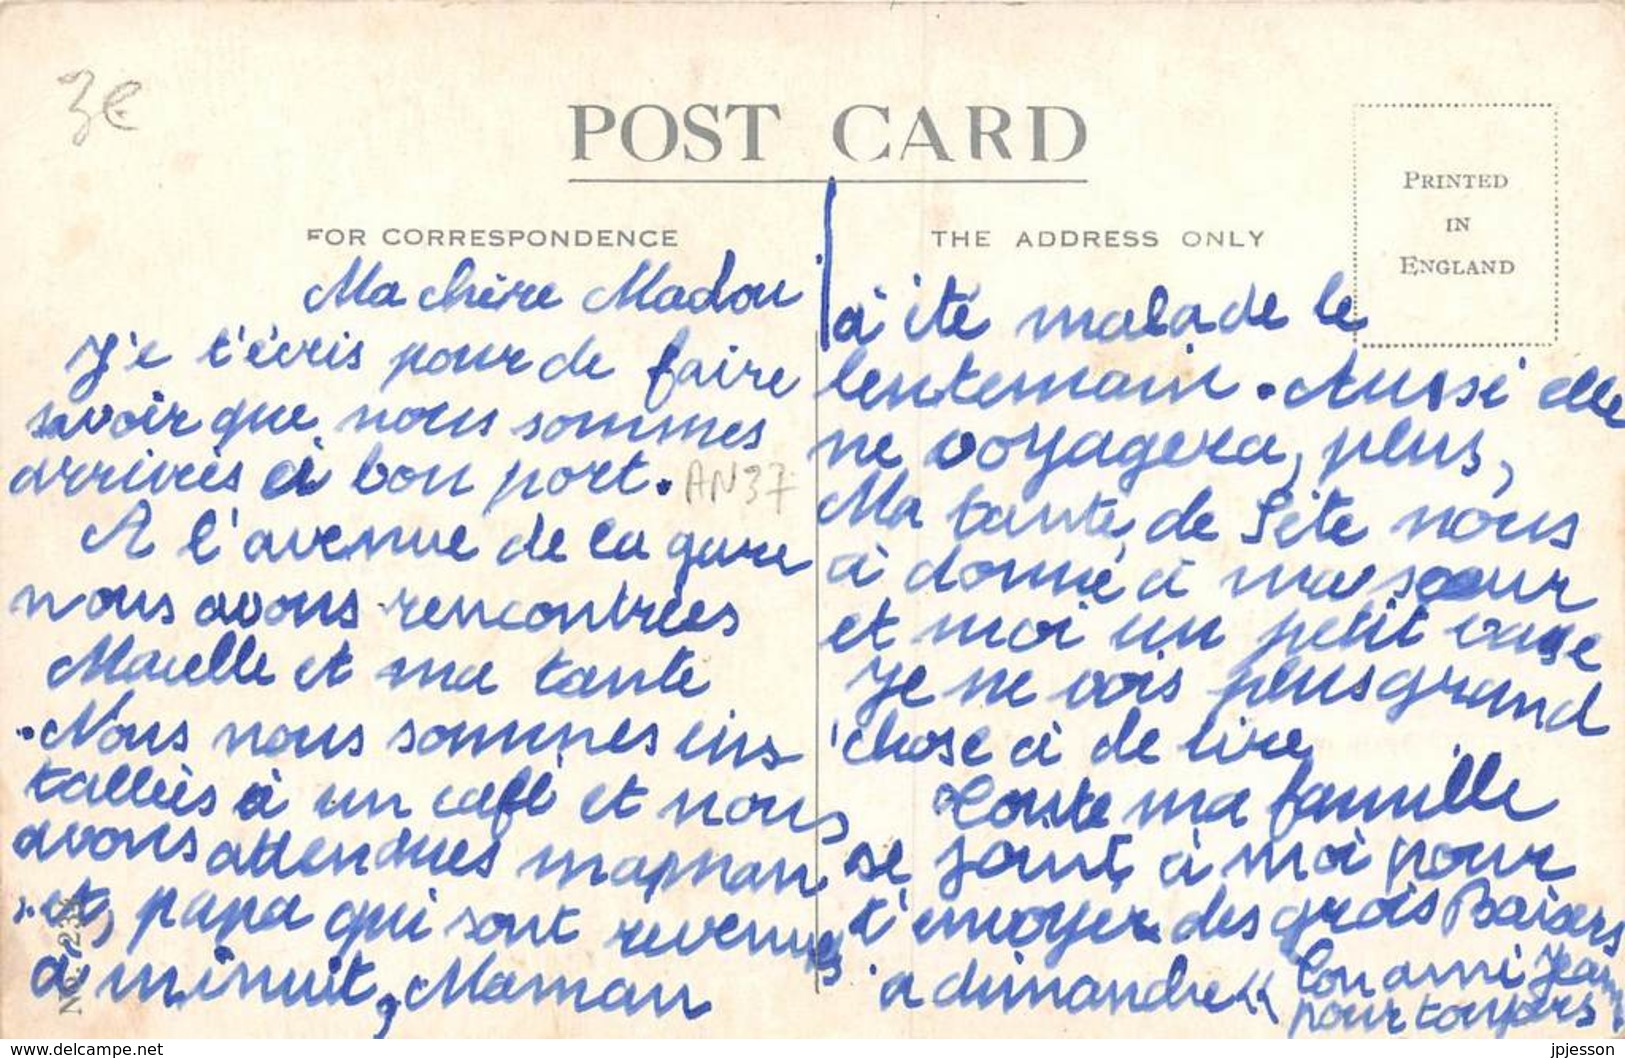 3€
POST CARD
FOR CORRESPONDENCE
THE ADDRESS ONLY
PRINTED
IN
ENGLAND
Ma chère Madou
J'e t'écris pour de faire
savoir que nous sommes
arrivés à bon port.
AN37
A l'avenue de la gare
nous avons rencontrées
Macelle et ma tante
. Nous nous sommes ins
tallées à un café et nous
avons attendues maman
et, papa qui sont revenues
à minuit, Maman
No. 233
à été malade le
lentemain. Aussi elle
ne voyagera, plus,
Ma tante, de Sète nous
à donné à ma soeur
et moi un petit vase
Je ne vois plus grand
chose à de lire
Toute ma famille
se joint à moi pour
t'envoyer des grois Baisers
a dimandre "
Ton ami Jean
pour toujours.
www.delcampe.net
jpjesson